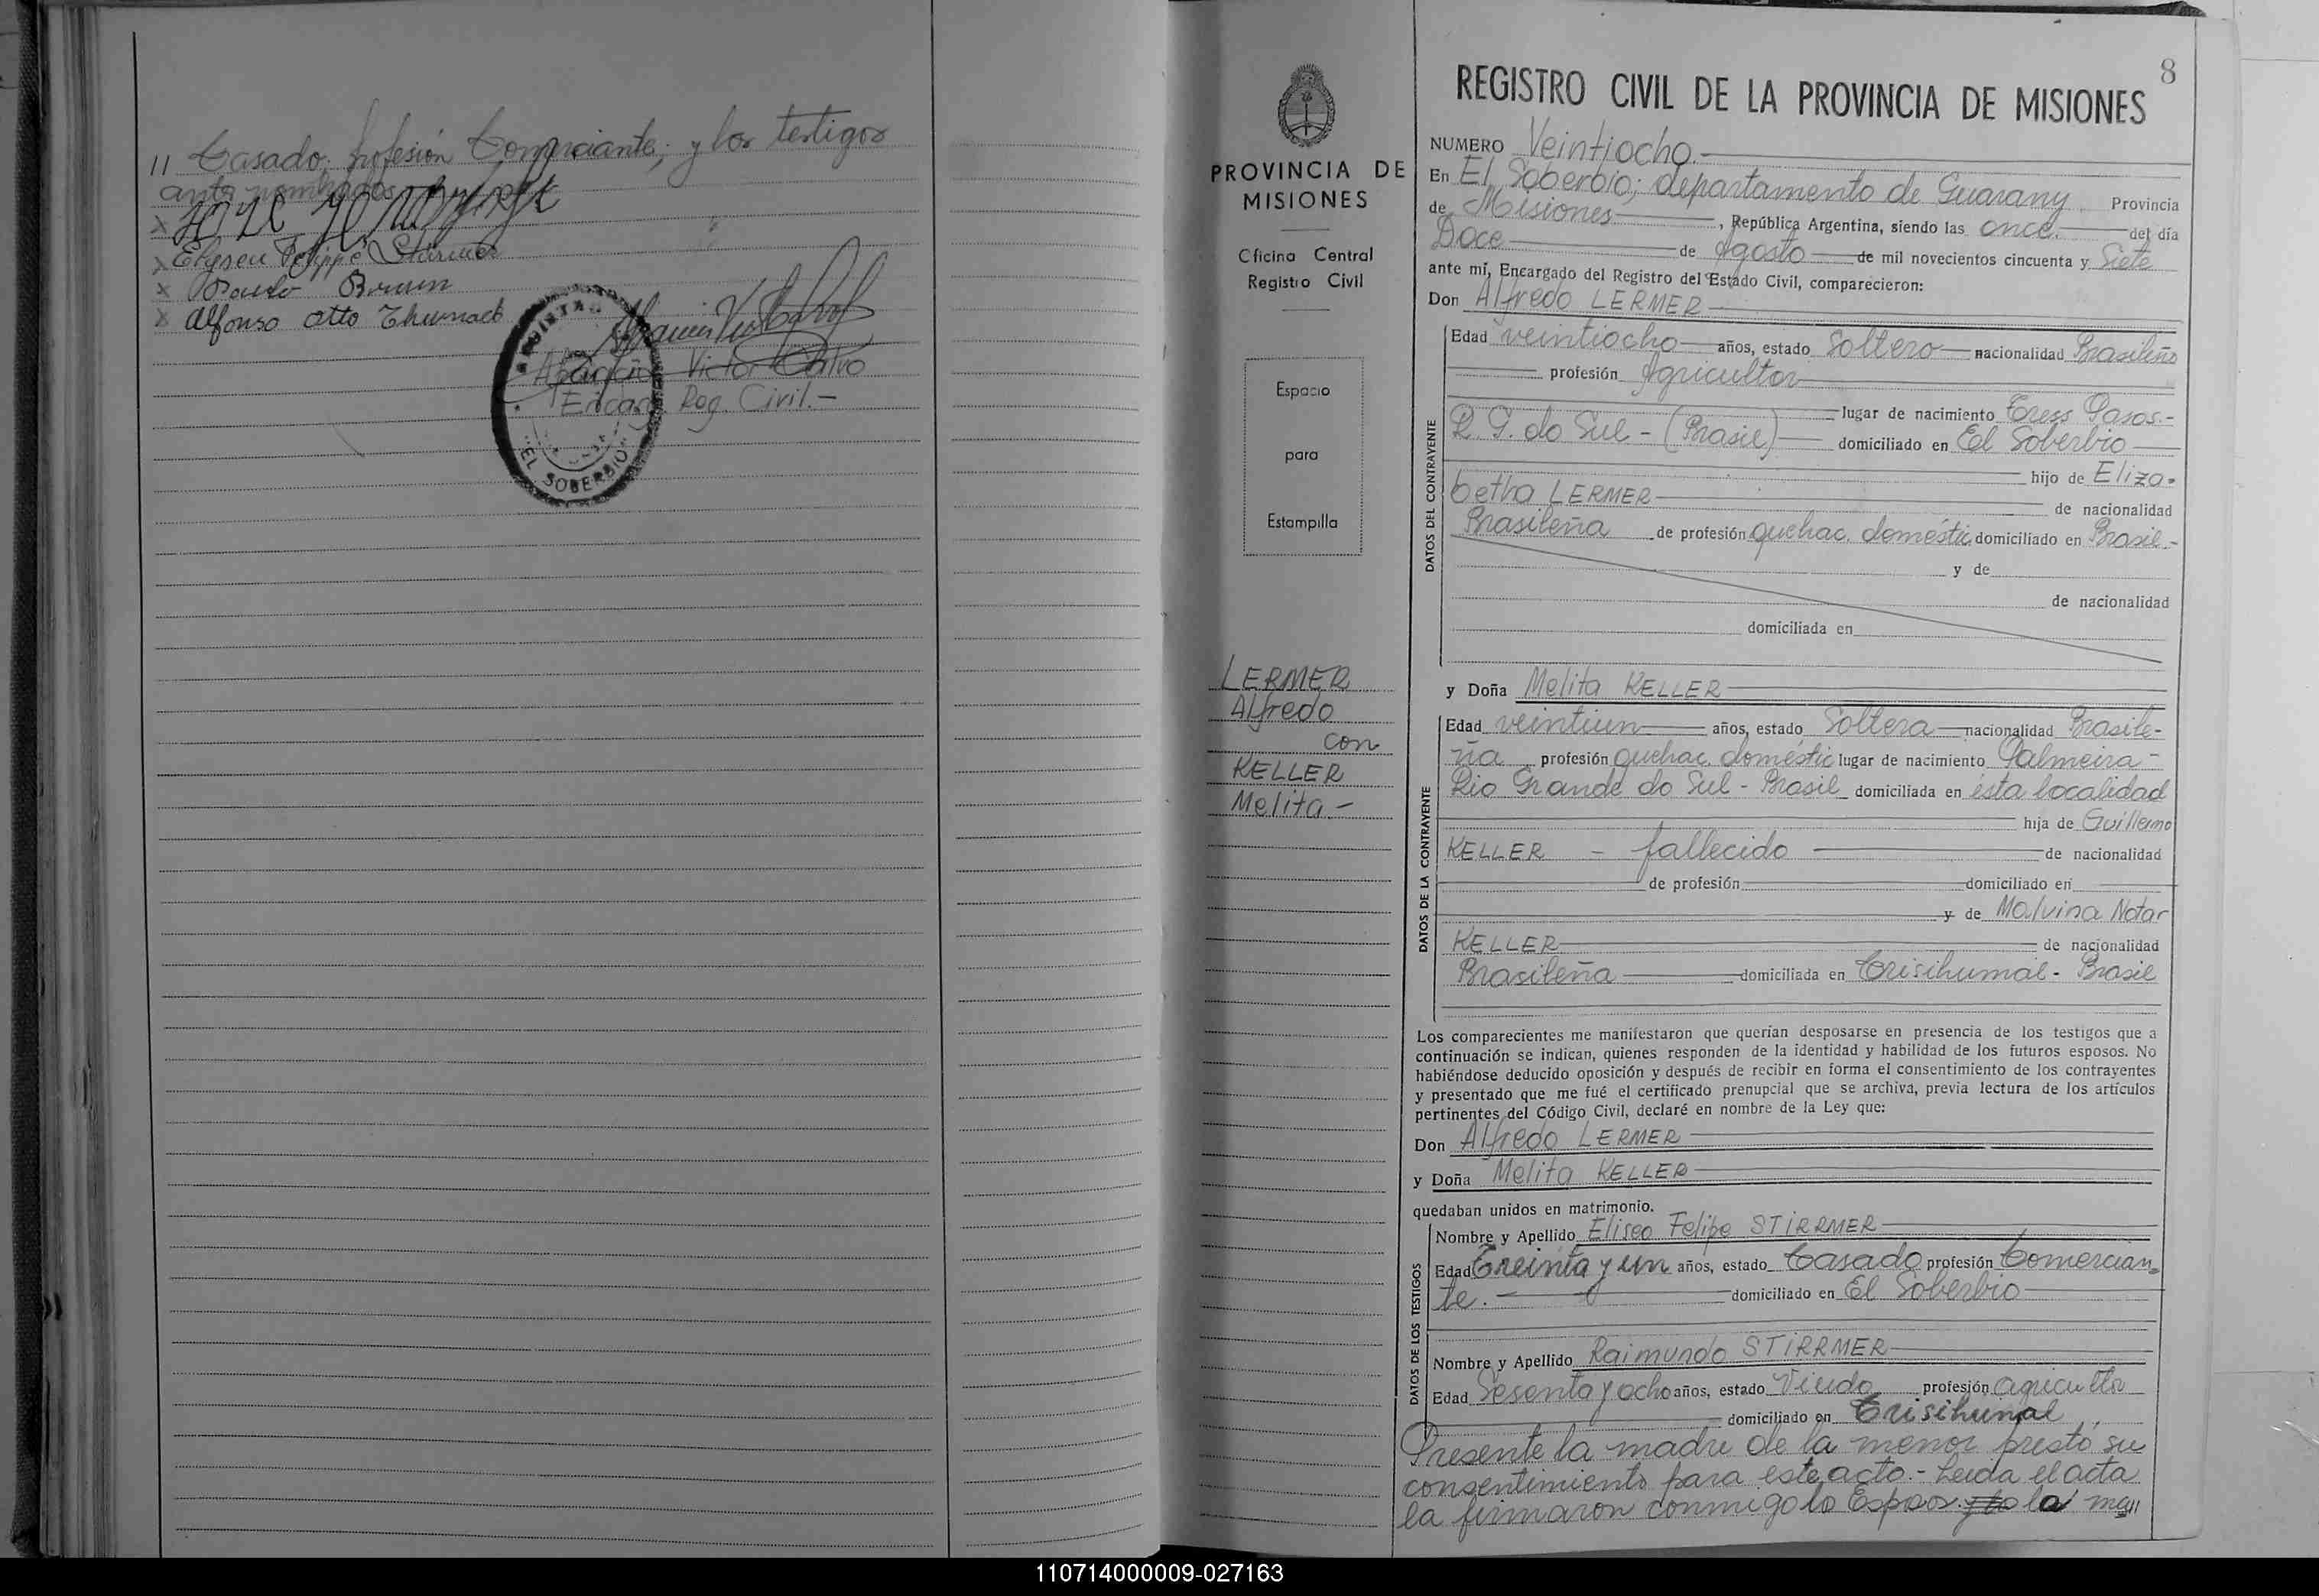 // Casado; profesión Comerciante; y los testigos
ante nombrados
x
x Elyseu Felippe Stürmer
x Paulo Brum
x Alfonso Otto Thumack
Victor
Encarg. Reg. Civil.-
EL SOBERBIO
PROVINCIA DE
MISIONES
Oficina Central
Registro Civil
Espacio
para
Estampilla
LERMER
Alfredo
con
KELLER
Melita.-
8
REGISTRO CIVIL DE LA PROVINCIA DE MISIONES
NUMERO Veintiocho.-
En El Soberbio; departamento de Guarany Provincia
de Misiones, República Argentina, siendo las once. del día
Doce de Agosto de mil novecientos cincuenta y Siete
ante mí, Encargado del Registro del Estado Civil, comparecieron:
Don Alfredo LERMER
DATOS DEL CONTRAYENTE
Edad veintiocho años, estado Soltero nacionalidad Brasileño
profesión Agricultor
lugar de nacimiento Tress Pasos.-
R. G. do Sul - (Brasil) domiciliado en El Soberbio
hijo de Eliza-
betha LERMER
de nacionalidad
Brasileña de profesión quehac. doméstic domiciliado en Brasil.-
y de
de nacionalidad
domiciliada en
y Doña Melita KELLER
DATOS DE LA CONTRAYENTE
Edad veintiun años, estado Soltera nacionalidad Brasile-
ña profesión quehac. doméstic lugar de nacimiento Palmeira -
Rio Grande do Sul - Brasil domiciliada en ésta localidad
hija de Guillermo
KELLER - fallecido de nacionalidad
de profesión domiciliado en
y de Malvina Notar
KELLER de nacionalidad
Brasileña domiciliada en Crisihumal - Brasil
Los comparecientes me manifestaron que querían desposarse en presencia de los testigos que a
continuación se indican, quienes responden de la identidad y habilidad de los futuros esposos. No
habiéndose deducido oposición y después de recibir en forma el consentimiento de los contrayentes
y presentado que me fué el certificado prenupcial que se archiva, previa lectura de los artículos
pertinentes del Código Civil, declaré en nombre de la Ley que:
Don Alfredo LERMER
y Doña Melita KELLER
quedaban unidos en matrimonio.
DATOS DE LOS TESTIGOS
Nombre y Apellido Eliseo Felipe STIRRMER
Edad Treinta y un años, estado Casado profesión Comercian-
te. domiciliado en El Soberbio
Nombre y Apellido Raimundo STIRRMER
Edad Sesenta y ocho años, estado Viudo profesión agricultor
domiciliado en Crisihumal
Presente la madre de la menor prestó su
consentimiento para este acto.- Leida el acta
la firmaron conmigo lo Espos. la ma//
110714000009-027163